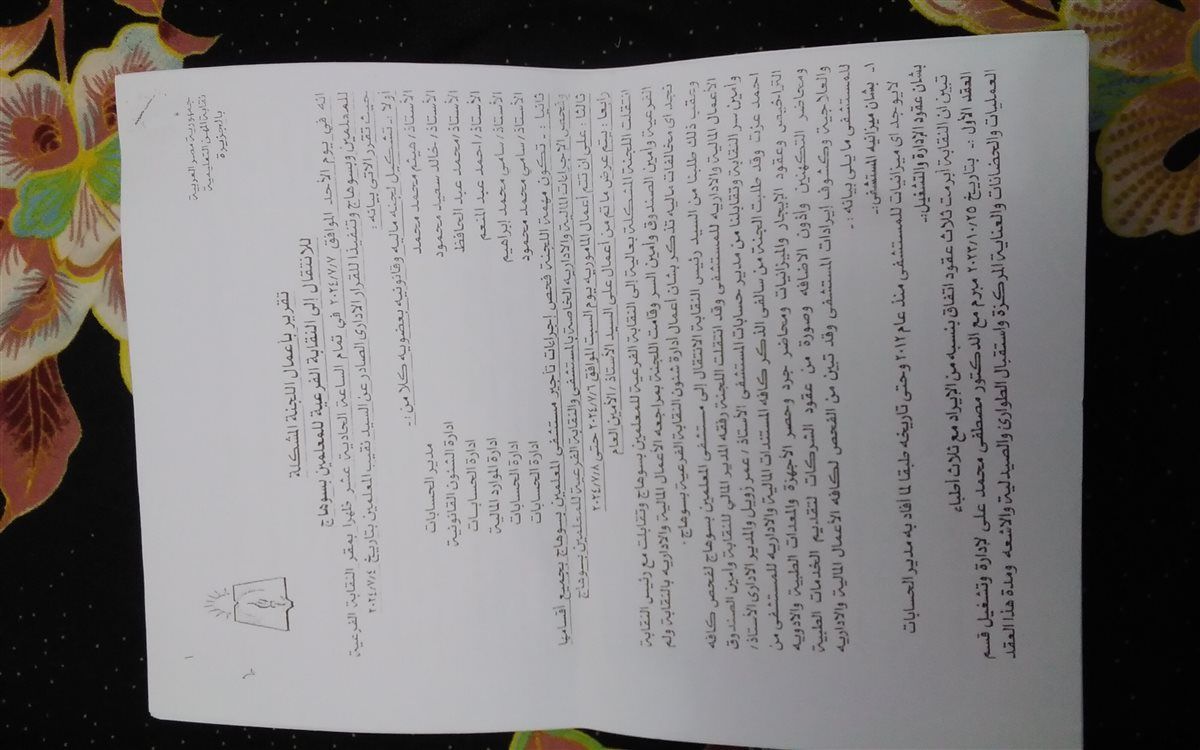 جمهورية مصر العربية
نقابة المهن التعليمية
بالجيزة
تقرير بأعمال اللجنة المشكلة
للانتقال إلى النقابة الفرعية للمعلمين بسوهاج
انه في يوم الأحد الموافق ٢٠٢٤/٧/٧ في تمام الساعة الحادية عشر ظهرا بمقر النقابة الفرعية
للمعلمين وبسوهاج وتنفيذا للقرار الادارى الصادر عن السيد نقيب المعلمين بتاريخ ٢٠٢٤/٧/٤
حيث تقرر الاتي بيانه :
اولا :- تشكيل لجنه ماليه وقانونيه بعضويه كلا من :-
الأستاذ/ هيثم محمد محمد مدير الحسابات
الأستاذ/ خالد سعيد محمود ادارة الشئون القانونية
الأستاذ/ محمد عبد الحافظ ادارة الحسابات
الأستاذ/ احمد عبد المنعم ادارة الموارد المالية
الأستاذ/ سامى محمد ابراهيم ادارة الحسابات
الأستاذ/ سامى محمد محمود ادارة الحسابات
ثانيا :- تكون مهمة اللجنة فحص إجراءات تأجير مستشفى المعلمين بسوهاج بجميع أقسامها
وفحص الاجراءات المالية والاداريه الخاصة بالمستشفى والنقابة الفرعية للمعلمين بسوهاج
ثالثا :- على ان تتم اعمال المأموريه يوم السبت الموافق ٢٠٢٤/٧/٦ حتى ٢٠٢٤/٧/٨
رابعا : يتم عرض ما تم من اعمال على السيد الأستاذ / الأمين العام
انتقلت اللجنة المشكلة بعاليه إلى النقابة الفرعية للمعلمين بسوهاج وتقابلت مع رئيس النقابة
الفرعية وأمين الصندوق وامين السر وقامت اللجنة بمراجعه الأعمال المالية والاداريه بالنقابة ولم
نجد اى مخالفات ماليه تذكر بشأن أعمال إدارة شئون النقابة الفرعية بسوهاج .
وعقب ذلك طلبنا من السيد رئيس النقابة الانتقال إلى مستشفى المعلمين بسوهاج لفحص كافه
الأعمال المالية والاداريه للمستشفى وقد انتقلت اللجنة رفقه المدير المالي للنقابة وأمين الصندوق
وأمين سر النقابة وتقابلنا من مدير حسابات المستشفى الأستاذ / عمر زويل والمدير الادارى الأستاذ/
احمد عزت وقد طلبت اللجنة من سالفى الذكر كافه المستندات المالية والاداريه للمستشفى من
التراخيص وعقود الإيجار والميزانيات ومحاضر جرد وحصر الأجهزة والمعدات الطبية والادويه
ومحاضر التكهين وأذون الاضافه وصورة من عقود الشركات لتقديم الخدمات الطبية
والعلاجية وكشوف إيرادات المستشفى وقد تبين من الفحص لكافه الأعمال المالية والاداريه
للمستشفى ما يلى بيانه :-
١- بشان ميزانيه المستشفى :-
لايوجد اى ميزانيات للمستشفى منذ عام ٢٠١٢ وحتى تاريخه طبقا لما أفاد به مدير الحسابات
بشان عقود الإدارة والتشغيل :-
تبين ان النقابة ابرمت ثلاث عقود اتفاق بنسبه من الإيراد مع ثلاث أطباء
العقد الأول :- بتاريخ ٢٠٢٣/١٠/٢٥ مبرم مع الدكتور مصطفى محمد على لإدارة وتشغيل قسم
العمليات والحضانات والعناية المركزة واستقبال الطوارئ والصيدلية والاشعه ومدة هذا العقد